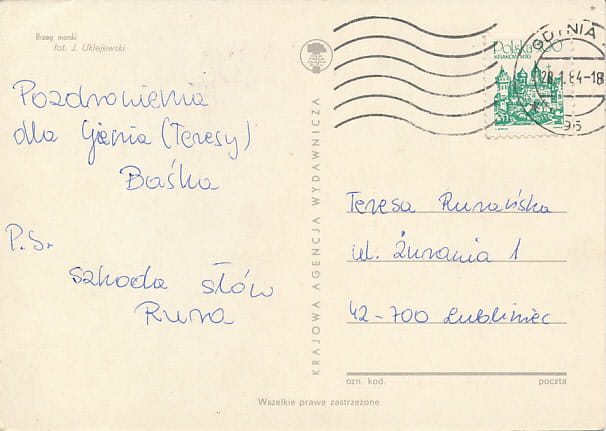 Brzeg morski
fot. J. Uklejewski
Pozdrowienia
dla Gienia (Teresy)
Baśka
P.S.
szkoda słów
Rura
KRAJOWA AGENCJA WYDAWNICZA
Polska
KRAKÓW 1493
GDYNIA
28.1.84-18
Teresa Rurańska
ul. Żurawia 1
42-700 Lubliniec
ozn. kod. poczta
Wszelkie prawa zastrzeżone